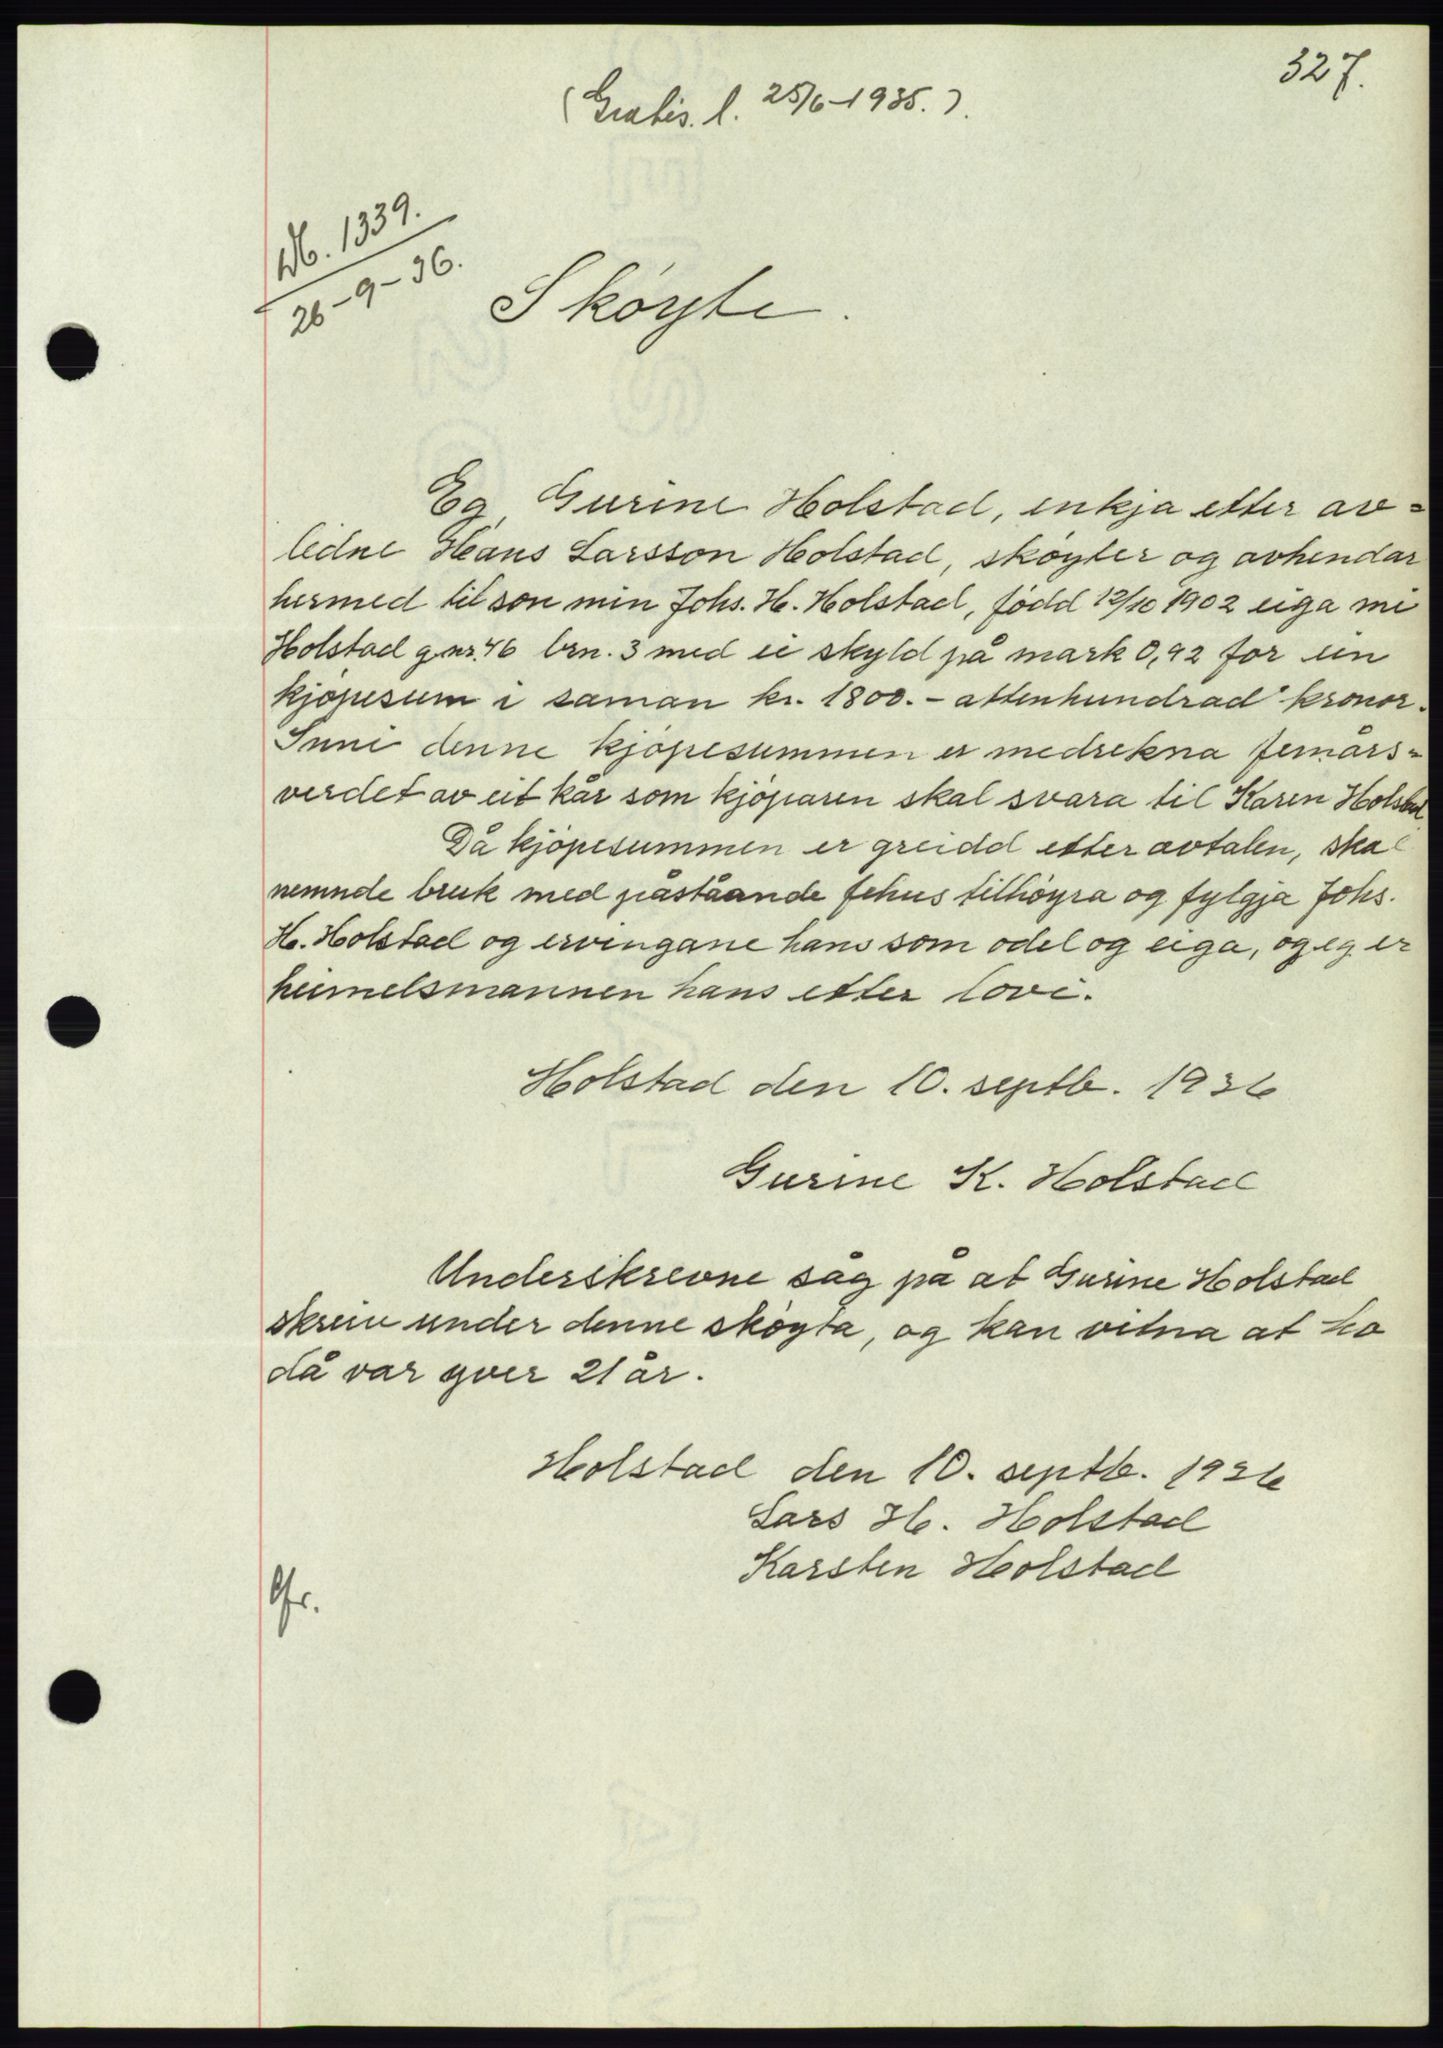 327.
(Gratis. l. 25/6-1935.).
Nr. 1339.
26-9-36.
Skøyte.
Eg Gurine Holstad, enkja etter av=
lidne Hans Larsson Holstad, skøyter og avhendar
hermed til son min Johs. H. Holstad, fødd 12/10 1902 eiga mi
Holstad g.nr. 46 brn. 3 med ei skyld på mark 0,92 for ein
kjøpesum i saman kr. 1800.- attenhundrad kronor.
Inni denne kjøpesummen er medrekna femårs=
verdet av eit kår som kjøparen skal svara til Karen Holstad.
Då kjøpesummen er greidd etter avtalen, skal
nemnde bruk med påståande fehus tilhøyra og fylgja Johs.
H. Holstad og ervingane hans som odel og eiga, og eg er
heimelsmannen hans etter lovi.
Holstad den 10. septb. 1936
Gurine K. Holstad
Underskrevne såg på at Gurine Holstad
skreiv under denne skøyta, og kan vitna at ho
då var yver 21 år.
Holstad den 10. septb. 1936
Lars H. Holstad
Karsten Holstad